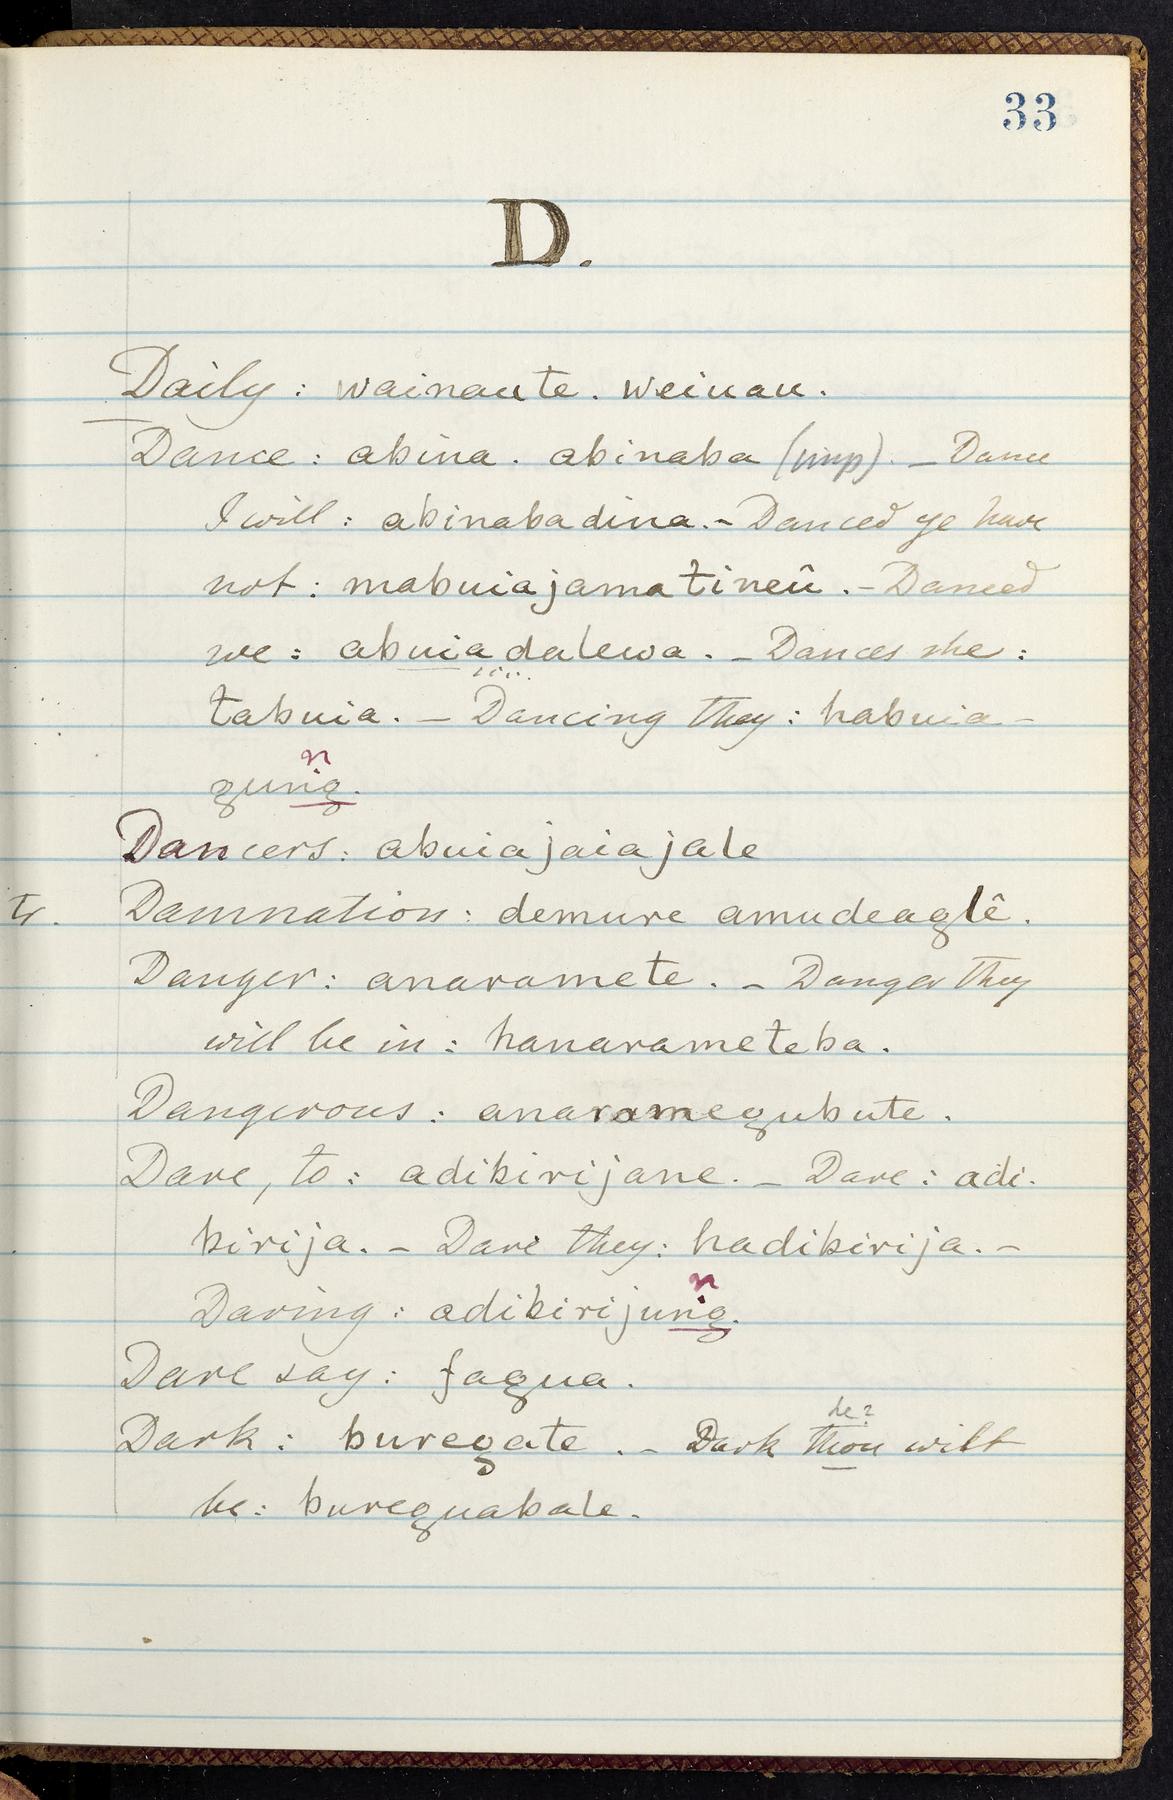 33
D.
Daily: wainaute. weiuau.
Dance: abina. abinaba (imp). – Dance
I will: abinabadina. – Danced ye have
not: mabuiajamatineû. – Danced
we: abuiadalewa. – Dances she:
tabuia. – Dancing they: habuia-
n
gung.
Dancers: abuiajaiajale
tr. Damnation: demure amudeaglê.
Danger: anaramete. – Danger they
will be in: hanarameteba.
Dangerous: anaramegubute.
Dare, to: adikirijane. – Dare: adi-
kirija. – Dare they: hadikirija. –
n
Daring: adikirijung.
Dare say: fagua.
he?
Dark: buregate. – Dark thou wilt
be: bureguabale.